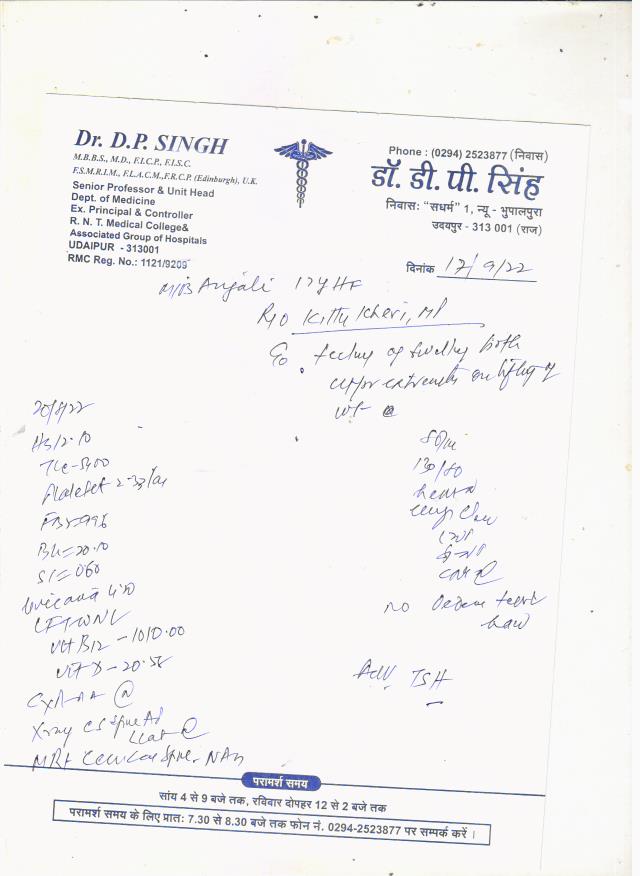 Dr. D.P. SINGH
M.B.B.S., M.D., F.I.C.P., F.I.S.C.
F.S.M.R.I.M., F.L.A.C.M.,F.R.C.P. (Edinburgh), U.K.
Senior Professor & Unit Head
Dept. of Medicine
Ex. Principal & Controller
R. N. T. Medical College&
Associated Group of Hospitals
UDAIPUR - 313001
RMC Reg. No.: 1121/9209
Phone : (0294) 2523877 (निवास)
डॉ. डी. पी. सिंह
निवास: "सधर्म" 1, न्यू - भुपालपुरा
उदयपुर - 313 001 (राज)
दिनांक 17/9/22
Anjali 17
R/o Kheri, MP
feeling of swelling both
upper on lifting of
wt-
20/8/22
Hb 12.10
TLC-5400
Platelet
FBS
BU=20.10
SC=0.60
LFT WNL
Vit B12 - 1010.00
Vit D - 20.58
Xray CS Spine AP
Lat
MRI Cervical Spine-
80/m
130/80
no Oedema
Adv TSH
परामर्श समय
सांय 4 से 9 बजे तक, रविवार दोपहर 12 से 2 बजे तक
परामर्श समय के लिए प्रातः 7.30 से 8.30 बजे तक फोन नं. 0294-2523877 पर सम्पर्क करें ।